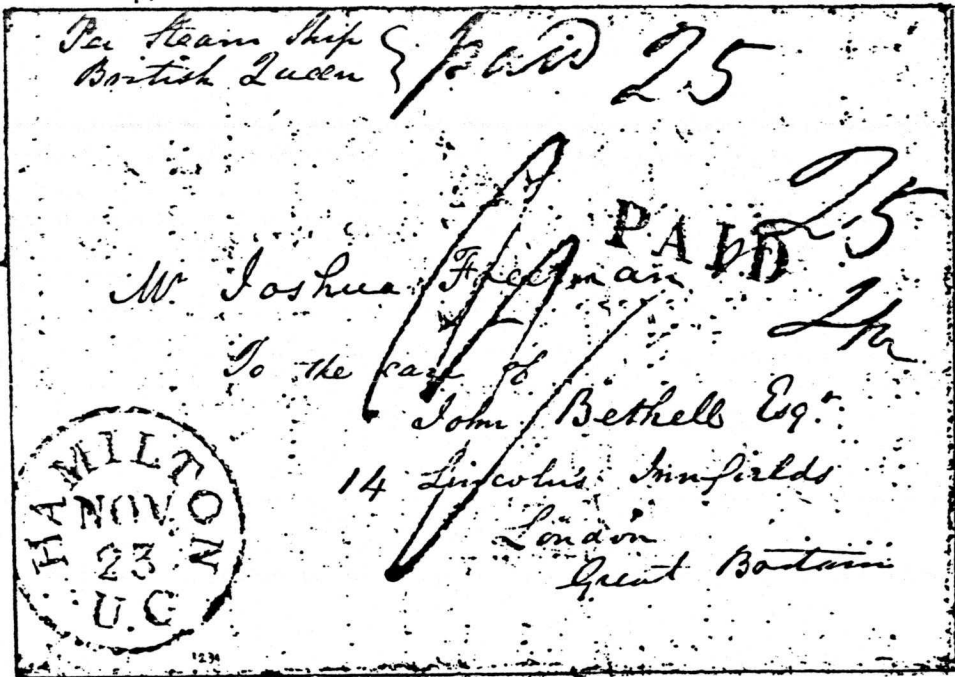 Per Steam Ship
British Queen } paid 25
PAID 25
Mr Joshua Freeman
To the care of
John Bethell Esqr
14 Lincoln's Innfields
London
Great Britain
HAMILTON
NOV
23
U.C
1234